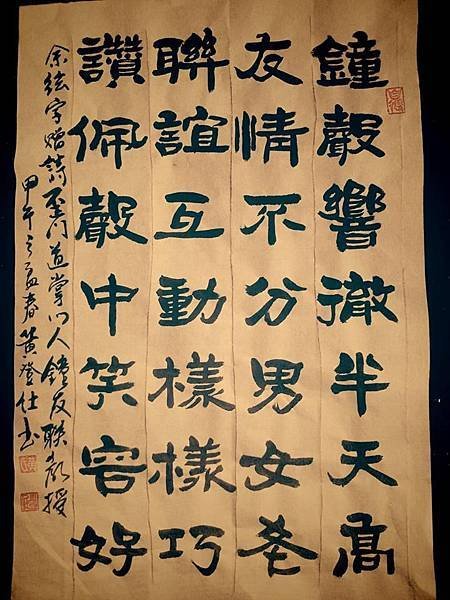 鐘聲響徹半天高
友情不分男女老
聯誼互動樣樣巧
讚佩聲中笑容好
余紘宇贈詩歪門道掌門人鐘友聯教授
甲午之孟春黃登仕書